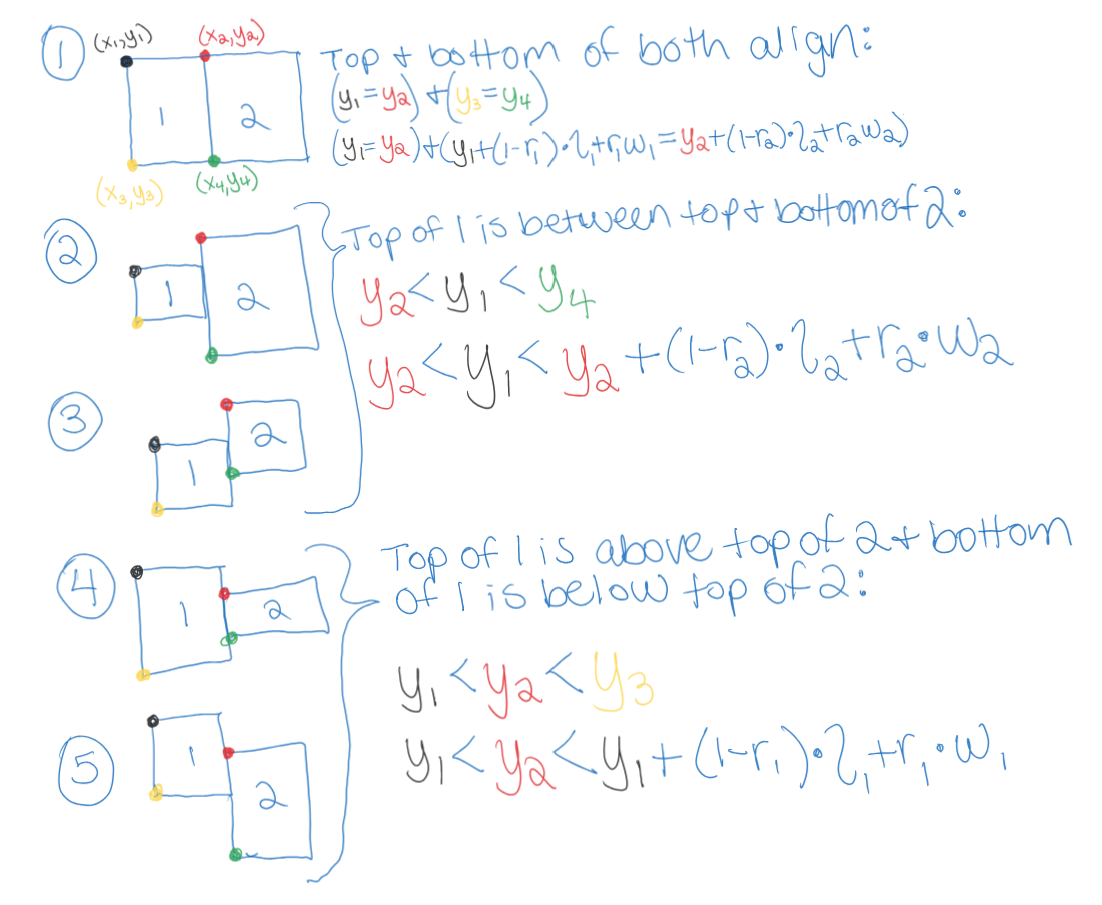 1
(x₁,y₁)
(x₂,y₂)
1
2
(x₃,y₃)
(x₄,y₄)
Top + bottom of both align:
(y₁=y₂) + (y₃=y₄)
(y₁=y₂)+(y₁+(1-r₁)·l₁+r₁w₁=y₂+(1-r₂)·l₂+r₂w₂)
2
1
2
Top of 1 is between top + bottom of 2:
y₂<y₁<y₄
y₂<y₁<y₂+(1-r₂)·l₂+r₂·w₂
3
1
2
4
1
2
Top of 1 is above top of 2 + bottom
of 1 is below top of 2:
y₁<y₂<y₃
y₁<y₂<y₁+(1-r₁)·l₁+r₁·w₁
5
1
2